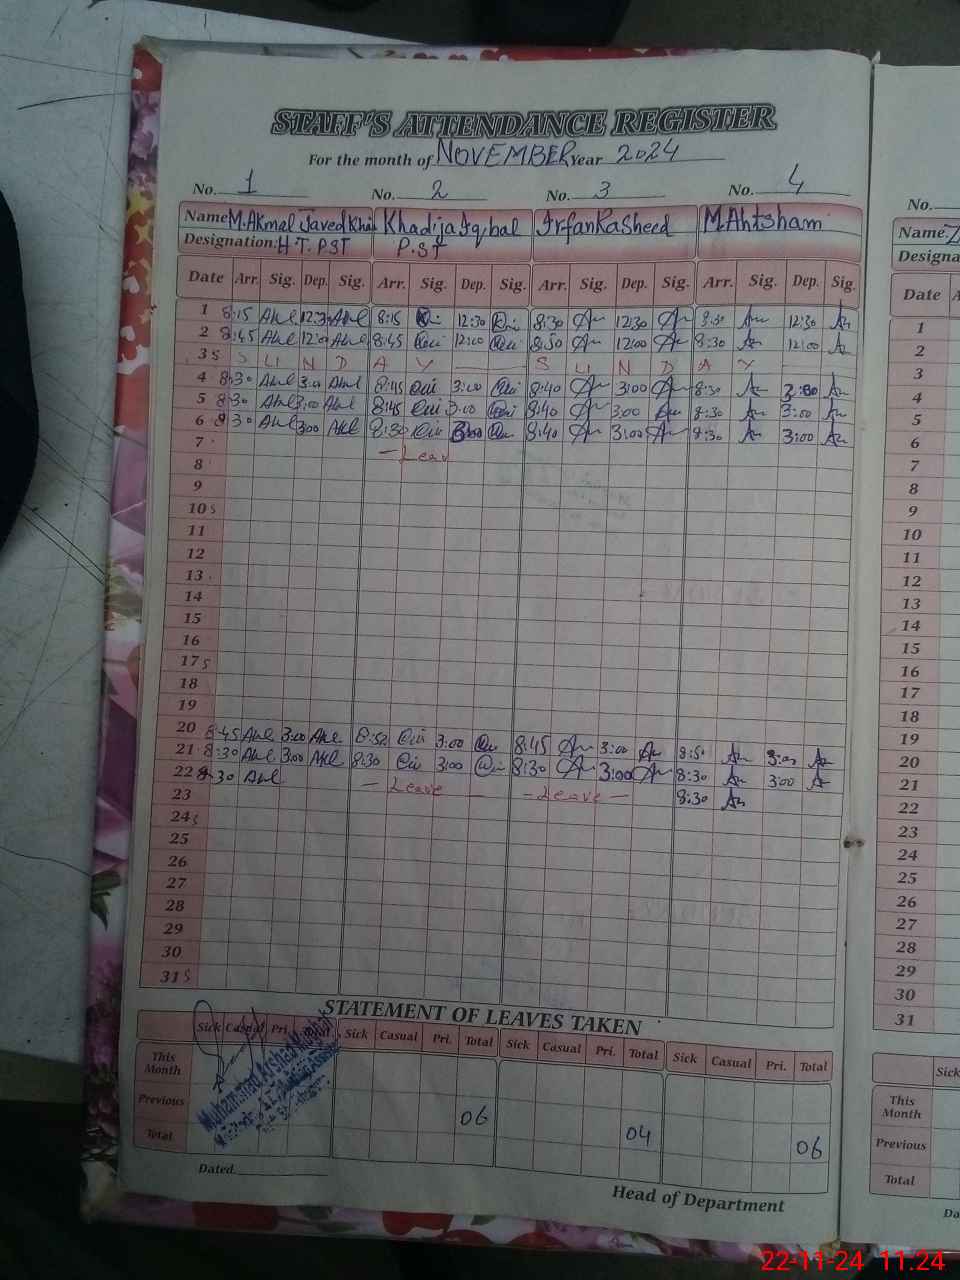 STAFF'S ATTENDANCE REGISTER
For the month of NOVEMBER Year 2024
No. 1 No. 2 No. 3 No. 4 No.
Name M.Akmal Javed Khan Khadija Iqbal Irfan Rasheed M Ahtsham Name.
Designation: H T. PST P.ST Designa
Date Arr. Sig. Dep. Sig. Arr. Sig. Dep. Sig. Arr. Sig. Dep. Sig. Arr. Sig. Dep. Sig. Date
1 8:15 12:30 8:15 12:30 8:30 12:30 8:30 12:30 1
2 8:45 12:00 8:45 12:00 8:50 12:00 8:30 12:00 2
3 S S U N D A Y S U N D A Y 3
4 8:30 3:00 8:45 3:00 8:40 3:00 8:30 3:00 4
5 8:30 3:00 8:45 3:00 8:40 3:00 8:30 3:00 5
6 8:30 3:00 8:30 3:00 8:40 3:00 8:30 3:00 6
7 - Leav 7
8 8
9 9
10 S 10
11 11
12 12
13 13
14 14
15 15
16 16
17 S 17
18 18
19 19
20 8:45 3:00 8:52 3:00 8:45 3:00 8:50 3:00 20
21 8:30 3:00 8:30 3:00 8:30 3:00 8:30 3:00 21
22 8:30 Leave - Leave - 8:30 22
23 23
24 S 24
25 25
26 26
27 27
28 28
29 29
30 30
31 S 31
STATEMENT OF LEAVES TAKEN
Sick Casual Pri. Total Sick Casual Pri. Total Sick Casual Pri. Total Sick Casual Pri. Total Sick
This Month This Month
Previous 06 04 06 Previous
Total Total
Muhammad Arshad
Dated. Da
Head of Department
22-11-24 11.24